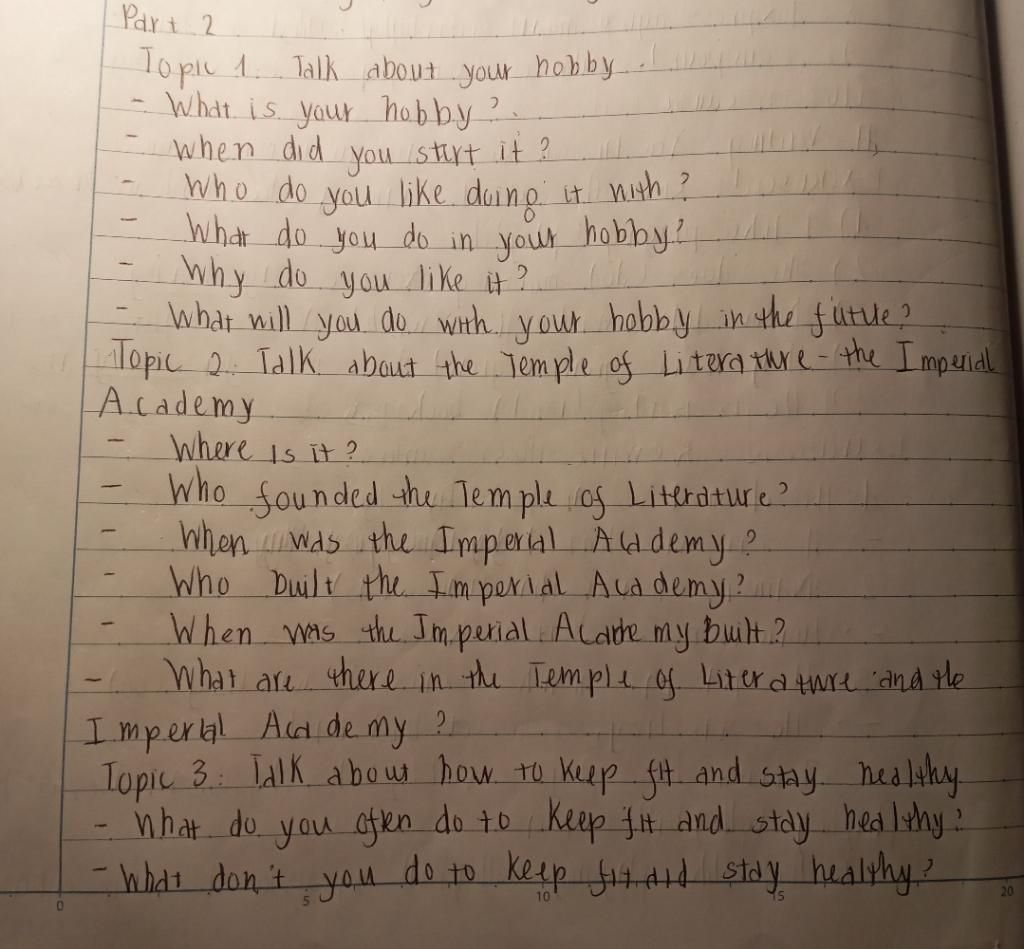 Part 2
Topic 1. Talk about your hobby.
- What is your hobby?
- When did you start it?
- Who do you like doing it with?
- What do you do in your hobby?
- Why do you like it?
- What will you do with your hobby in the futue?
Topic 2. Talk about the Temple of Literature - the Imperial
Academy
- Where is it?
- Who founded the Temple of Literature?
- When was the Imperial Academy?
- Who built the Imperial Academy?
- When was the Imperial Academy built?
- What are there in the Temple of Literature and the
Imperial Academy?
Topic 3: Talk about how to keep fit and stay healthy
- What do you often do to keep fit and stay healthy?
- What don't you do to keep fit and stay healthy?
0 5 10 15 20